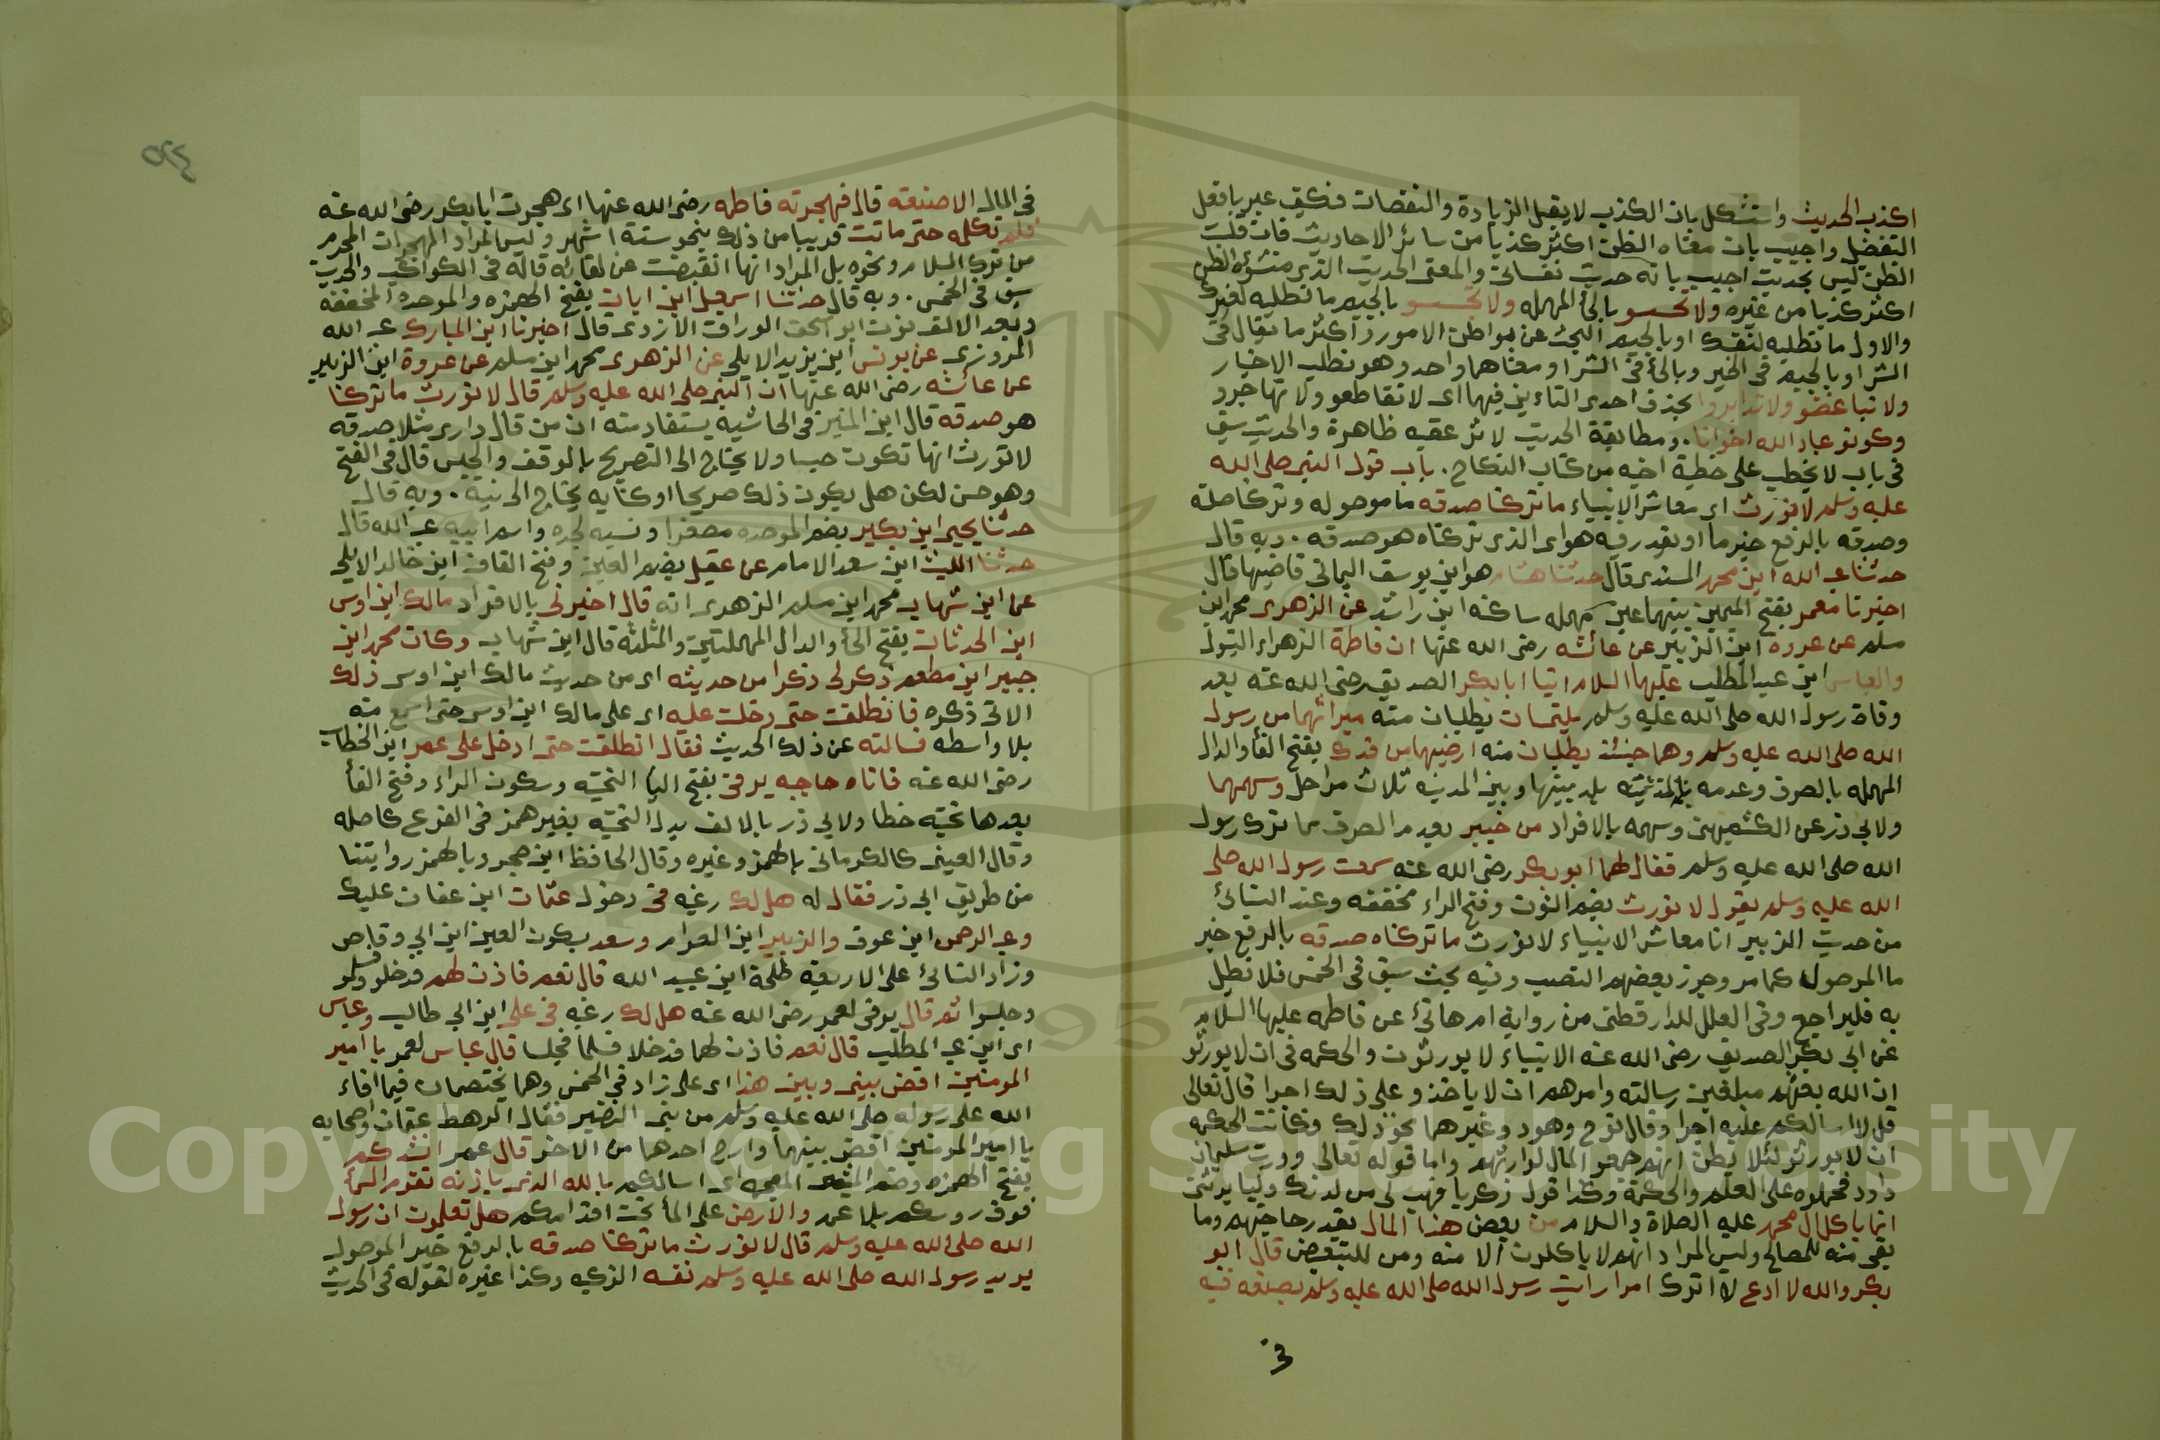 اكذب الحديث واستشكل بان الكذب لا يقبل الزيادة والنقصات فكيف عبر بافعل
التفضيل واجيب بان معناه الظن اكثر كذبا من سائر الاحاديث فان قلت
الظن ليس بحديث اجيب بانه حديث نفساني والمعنى الحديث الذي منشؤه الظن
اكثر كذبا من غيره ولا تحسسو بالحأ المهمله ولا تجسسو بالجيم ما تطلبه لغيرك
والاول ما تطلبه لنفسك او بالجيم البحث عن بواطن الامور واكثر ما يقال في
الشر او بالجيم في الخير وبالحأ في الشر او معناهما واحد وهو تطلب الاخبار
ولا تباغضو ولا تدابروا بحذف احدى التاءين فيهما اى لا تقاطعو ولا تهاجرو
وكونو عباد الله اخوانا. ومطابقة الحديث لاثر عقبه ظاهرة والحديث سبق
في باب لا يخطب على خطبة اخيه من كتاب النكاح. باب قول النبي صلى الله
عليه وسلم لا نورث اى معاشر الانبياء ما تركنا صدقه ما موصوله وتركنا صلته
وصدقه بالرفع خبر ما او يقدر فيه هو اى الذى تركناه هو صدقه. وبه قال
حدثنا عبد الله ابن محمد المسندى قال حدثنا هشام هو ابن يوسف اليماني قاضيها قال
اخبرنا معمر بفتح الميمين بينهما عين مهمله ساكنه ابن راشد عن الزهرى محمد ابن
مسلم عن عروه ابن الزبير عن عائشه رضى الله عنها ان فاطمة الزهراء البتول
والعباس ابن عبد المطلب عليهما السلام اتيا ابا بكر الصديق رضى الله عنه بعد
وفاة رسول الله صلى الله عليه وسلم يلتمسات يطلبان منه ميراثهما من رسول
الله صلى الله عليه وسلم وهما حينئذ يطلبان منه ارضيهما من فدك بفتح الفأ والدال
المهمله بالصرف وعدمه بلد بينها وبين المدينه ثلاث مراحل وسهمهما
ولابي ذر عن الكشميهني وسهمه بالافراد من خيبر بعدم الصرف مما ترك رسول
الله صلى الله عليه وسلم فقال لهما ابو بكر رضى الله عنه سمعت رسول الله صلى
الله عليه وسلم يقول لا نورث بضم النون وفتح الراء مخففه وعند النسائئ
من حديث الزبير انا معاشر الانبياء لا نورث ما تركناه صدقه بالرفع خبر
ما الموصول كما مر وجوز بعضهم النصب وفيه بحث سبق في الخمس فلا نطيل
به فليراجع وفي العلل للدارقطني من رواية ام هانئ عن فاطمه عليها السلام
عن ابي بكر الصديق رضى الله عنه الانبياء لا يورثون والحكمه في ان لا يورثو
ان الله بعثهم مبلغين رسالته وامرهم ان لا ياخذو على ذلك اجرا قال تعالى
قل لا اسالكم عليه اجرا وقال نوح وهود وغيرهما نحو ذلك وكانت الحكمه
ان لا يورثو لئلا يظن انهم جمعو المال لوارثهم واما قوله تعالى وورث سليمان
داود فحملوه على العلم والحكمة وكذا قول زكريا فهب لى من لدنك وليا يرثني
انما ياكل ال محمد عليه الصلاة والسلام من بعض هذا المال بقدر حاجتهم وما
بقى منه للمصالح وليس المراد انهم لا ياكلون الا منه ومن للتبعيض قال ابو
بكر والله لا ادع لا اترك امرا رايت رسول الله صلى الله عليه وسلم يصنعه فيه
في
في المال الا صنعته قال فهجرته فاطمه رضى الله عنها اى هجرت ابا بكر رضى الله عنه
فلم تكلمه حتى ماتت قريبا من ذلك بنحو ستة اشهر وليس المراد الهجرات المحرم
من ترك السلام ونحوه بل المراد انها انقبضت عن لقائه قاله في الكواكب والحديث
سبق في الخمس. وبه قال حدثنا اسمعيل ابن ابان بفتح الهمزه والموحده المخففه
وبعد الالف نون ابو اسحق الوراق الازدى قال اخبرنا ابن المبارك عبد الله
المروزى عن يونس ابن يزيد الايلى عن الزهرى محمد ابن مسلم عن عروة ابن الزبير
عن عائشه رضى الله عنها ان النبي صلى الله عليه وسلم قال لا نورث ما تركنا
هو صدقه قال ابن المنير في الحاشيه يستفاد منه ان من قال دارى مثلا صدقه
لا تورث انها تكون حبسا ولا يحتاج الى التصريح بالوقف والحبس قال في الفتح
وهو حسن لكن هل يكون ذلك صريحا او كنايه يحتاج الى نية. وبه قال
حدثنا يحيى ابن بكير بضم الموحده مصغرا ونسبه لجده واسم ابيه عبد الله قال
حدثنا الليث ابن سعد الامام عن عقيل بضم العين وفتح القاف ابن خالد الايلى
عن ابن شهاب محمد ابن مسلم الزهرى انه قال اخبرني بالافراد مالك ابن اوس
ابن الحدثان بفتح الحأ والدال المهملتين والمثلثه قال ابن شهاب وكان محمد ابن
جبير ابن مطعم ذكر لى ذكرا من حديثه اى من حديث مالك ابن اوس ذلك
الاتى ذكره فانطلقت حتى دخلت عليه اى على مالك ابن اوس حتى اسمع منه
بلا واسطه فسالته عن ذلك الحديث فقال انطلقت حتى ادخل على عمر ابن الخطاب
رضى الله عنه فاتاه حاجبه يرفى بفتح اليأ التحتيه وسكون الراء وفتح الفأ
بعدها تحتيه خطا ولابي ذر بالالف بدل التحتيه بغير همز في الفرع كاصله
وقال العينى كالكرماني بالهمز وغيره وقال الحافظ ابن حجر وبالهمز روايتنا
من طريق ابى ذر فقال له هل لك رغبه في دخول عثمان ابن عفان عليك
وعبد الرحمن ابن عوف والزبير ابن العوام وسعد بسكون العين ابن ابي وقاص
وزاد النسائئ على الاربعة طلحة ابن عبيد الله قال نعم فاذن لهم فدخلو فسلمو
وجلسوا ثم قال يرفى لعمر رضى الله عنه هل لك رغبه في على ابن ابى طالب وعباس
اى ابن عبد المطلب قال نعم فاذن لهما فدخلا فسلما فجلسا قال عباس لعمر يا امير
المومنين اقض بينى وبين هذا اى على زاد في الخمس وهما يختصمان فيما افاء
الله على رسوله صلى الله عليه وسلم من بني النضير فقال الرهط عثمان واصحابه
يا امير المومنين اقض بينهما وارح احدهما من الاخر قال عمر انشدكم
بفتح الهمزه وضم الشين المعجمه اى اسالكم بالله الذى باذنه تقوم السمأ
فوق روسكم بلا عمد والارض على المأ تحت اقدامكم هل تعلمون ان رسول
الله صلى الله عليه وسلم قال لا نورث ما تركنا صدقه بالرفع خبر الموصول
يريد رسول الله صلى الله عليه وسلم نفسه الزكيه وكذا غيره لقوله في الحديث
Copyright © King Saud University
1957